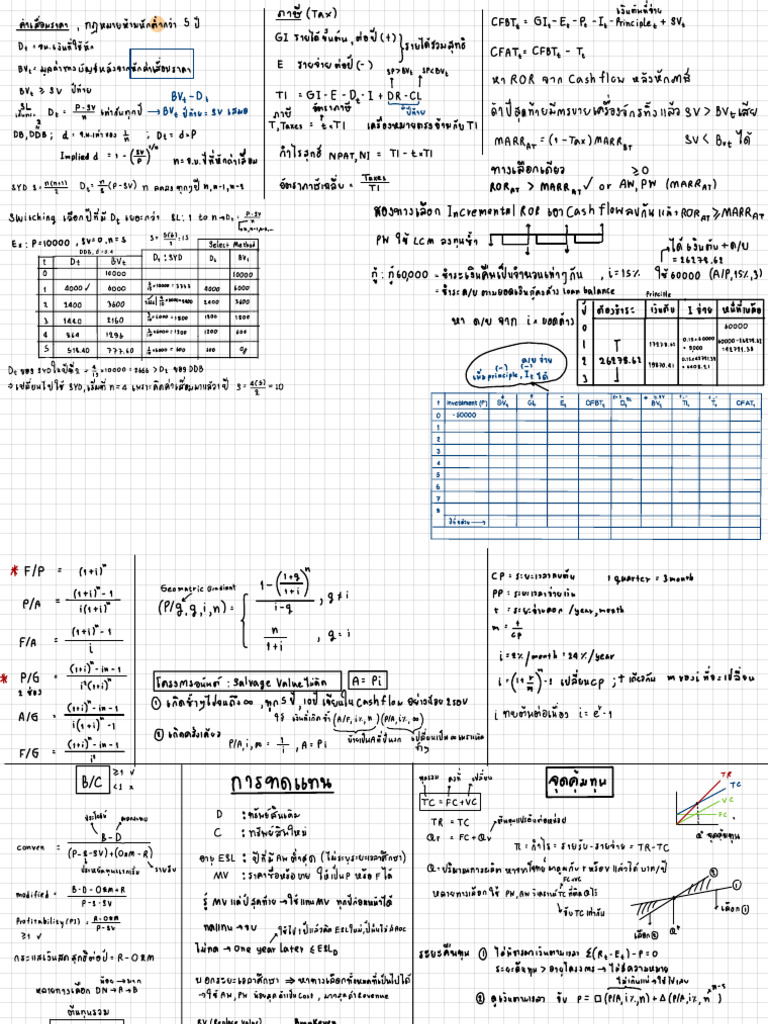 ค่าเสื่อมราคา , กฎหมายห้ามหักต่ำกว่า 5 ปี
Dt = จน.เงินที่ใช้หัก
BVt = มูลค่าทางบัญชีหลังจากหักค่าเสื่อมราคา
BVt ≥ SV ปีท้าย
BVt - Dt
SL Dt = P-SV / n เท่ากันทุกปี → BVt ปีท้าย = SV เสมอ
DB, DDB ; d = จน.เท่าของ 1/n ; Dt = d×P
Implied d = 1 - (SV/P)^1/n n = จน.ปีที่หักค่าเสื่อม
SYD S = n(n+1)/2 Dt = n/S (P-SV) n ลดลงทุกๆปี n, n-1, n-2
Switching เลือกปีที่มี Dt เยอะกว่า SL : 1 to n → Dt = P-SV / n
Ex : P=10000 , SV=0, n=5 S = 5(6)/2 = 15
DDB, d = 0.4 Select Method
t Dt BVt Dt : SYD Dt BVt
0 10000 10000
1 4000 ✓ 6000 5/15 × 10000 = 3333 4000 6000
2 2400 3600 2400 3600
3 1440 2160 3/10 × 6000 = 1800 1800 1800
4 864 1296 2/10 × 6000 = 1200 1200 600
5 518.40 777.60 1/10 × 6000 = 600 600
Dt ของ SYD ในปีที่ 2 = 4/15 × 10000 = 2666 > Dt ของ DDB
⇒ เปลี่ยนไปใช้ SYD, เริ่มที่ n = 4 เพราะคิดค่าเสื่อมมาแล้ว 1 ปี S = 4(5)/2 = 10
ภาษี (Tax)
GI รายได้ขั้นต้น, ต่อปี (+)
E รายจ่าย ต่อปี (-)
รายได้รวมสุทธิ
SP>BVt SP<BVt
TI = GI - E - Dt - I + DR - CL
ภาษี อัตราภาษี ปีท้าย
T, Taxes = t × TI เครื่องหมายตรงข้ามกับ TI
กำไรสุทธิ NPAT, NI = TI - t×TI
อัตราภาษีเฉลี่ย = Taxes / TI
เงินต้นที่จ่าย
CFBTt = GIt - Et - Pt - It - Principlet + SVt
CFATt = CFBTt - Tt
หา ROR จาก Cash flow หลังหักภาษี
ถ้าปีสุดท้ายมีการขายเครื่องจักรทิ้งแล้ว SV > BVt เสีย
MARR AT = (1 - Tax) MARR BT SV < BVt ได้
ทางเลือกเดียว ≥0
ROR AT > MARR AT ✓ or AW, PW (MARR AT)
สองทางเลือก Incremental ROR เอา Cash flow ลบกัน แล้ว ROR AT ≥ MARR AT
PW ใช้ LCM ลงทุนซ้ำ
ได้ เงินต้น + ด/บ = 26278.62
กู้ : กู้ 60,000 - ชำระเงินคืนเป็นจำนวนเท่าๆกัน , i = 15% ใช้ 60000 (A/P,15%,3)
- ชำระ ด/บ ตามยอดเงินกู้คงค้าง loan balance
หา ด/บ จาก i × ยอดค้าง
Principle
ปี ต้องชำระ เงินต้น I จ่าย หนี้ที่เหลือ
0 60000
1 17278.62 0.15×60000 = 9000 60000-17278.62 = 42721.38
2 26278.62 19870.41 0.15×42721.38 = 6408.21
3
(-) (-) ด/บ จ่าย
เพิ่ม principle, It ได้
t Investment (P) SVt GIt Et CFBTt Dt BVt TIt Tt CFATt
0 -50000
1
2
3
4
5
6
7
8
* F/P = (1+i)^n
P/A = (1+i)^n - 1 / i(1+i)^n
F/A = (1+i)^n - 1 / i
* P/G = (1+i)^n - in - 1 / i²(1+i)^n
2 ช่อง
A/G = (1+i)^n - in - 1 / i(1+i)^n - i
F/G = (1+i)^n - in - 1 / i²
Geometric Gradient
(P/g, g, i, n) = 1 - ((1+g)/(1+i))^n / i-g , g ≠ i
n / 1+i , g = i
โครงการอนันต์ : Salvage Value ไม่คิด A = Pi
① เกิดซ้ำๆไปจนถึง ∞ , ทุก 5 ปี, 10 ปี เขียนใน Cash flow อย่างน้อย 2 รอบ
ใช้ เงินที่เกิดซ้ำ (A/F, i%, n) (P/A, i%, ∞)
② เกิดครั้งเดียว P/A, i, ∞ = 1/i , A = Pi
CP = ระยะเวลาคบต้น 1 quarter = 3 month
PP = ระยะเวลาจ่ายเงิน
t = ระยะอ้างอิง /year, month
m = t / CP
i = 2% / month = 24% / year
i = (1 + r/m)^m - 1 เปลี่ยน CP ; t เดียวกัน m ของ i ที่จะเปลี่ยน
i ทายต้นต่อเนื่อง i = e^r - 1
B/C ≥1 ✓
<1 ×
ประโยชน์
conven = B - D / (P-S-SV)+(O&M-R)
รายรับ
modified = B-D-O&M+R / P-S-SV
Profitability (PI) = R-O&M / P-SV
≥1 ✓
กระแสเงินสดสุทธิต่อปี = R - O&M
น้อย → มาก
หลายทางเลือก DN → A → B
ต้นทุนรวม
การทดแทน
D : ทรัพย์สินเดิม
C : ทรัพย์สินใหม่
อายุ ESL : ปีที่มี AW ต่ำสุด (ไม่ระบุระยะเวลาศึกษา)
MV : ราคาซื้อหรือขาย ใช้เป็น P หรือ F ได้
รู้ MV แต่ปีสุดท้าย → ใช้แทน MV ทุกปีก่อนหน้าได้
ทดแทน → จบ
ไม่ทด → One year later ESL D
บอกระยะเวลาศึกษา ⇒ หาทางเลือกทั้งหมดที่เป็นไปได้
→ ใช้ AW, PW น้อยสุดถ้าเป็น Cost , มากสุดถ้า Revenue
จุดคุ้มทุน
ทุนรวม คงที่ เปลี่ยน
TC = FC+VC
TR = TC
Qr = FC + Qv
π = กำไร = รายรับ - รายจ่าย = TR - TC
FC+VC
หลายทางเลือก ใช้ PW, AW
TR
TC
VC
FC
Q* จุดคุ้มทุน
②
①
เลือก ①
เลือก ②
Q*
ระยะคืนทุน ① ไม่มีการเงินตามเวลา Σ(Rt - Et) - P = 0
ระยะคืนทุน > อายุโครงการ → ไม่มีความหมาย
② ดูเงินตามเวลา จับ P = □(P/A, i%, n) + Δ(P/A, i%, n)